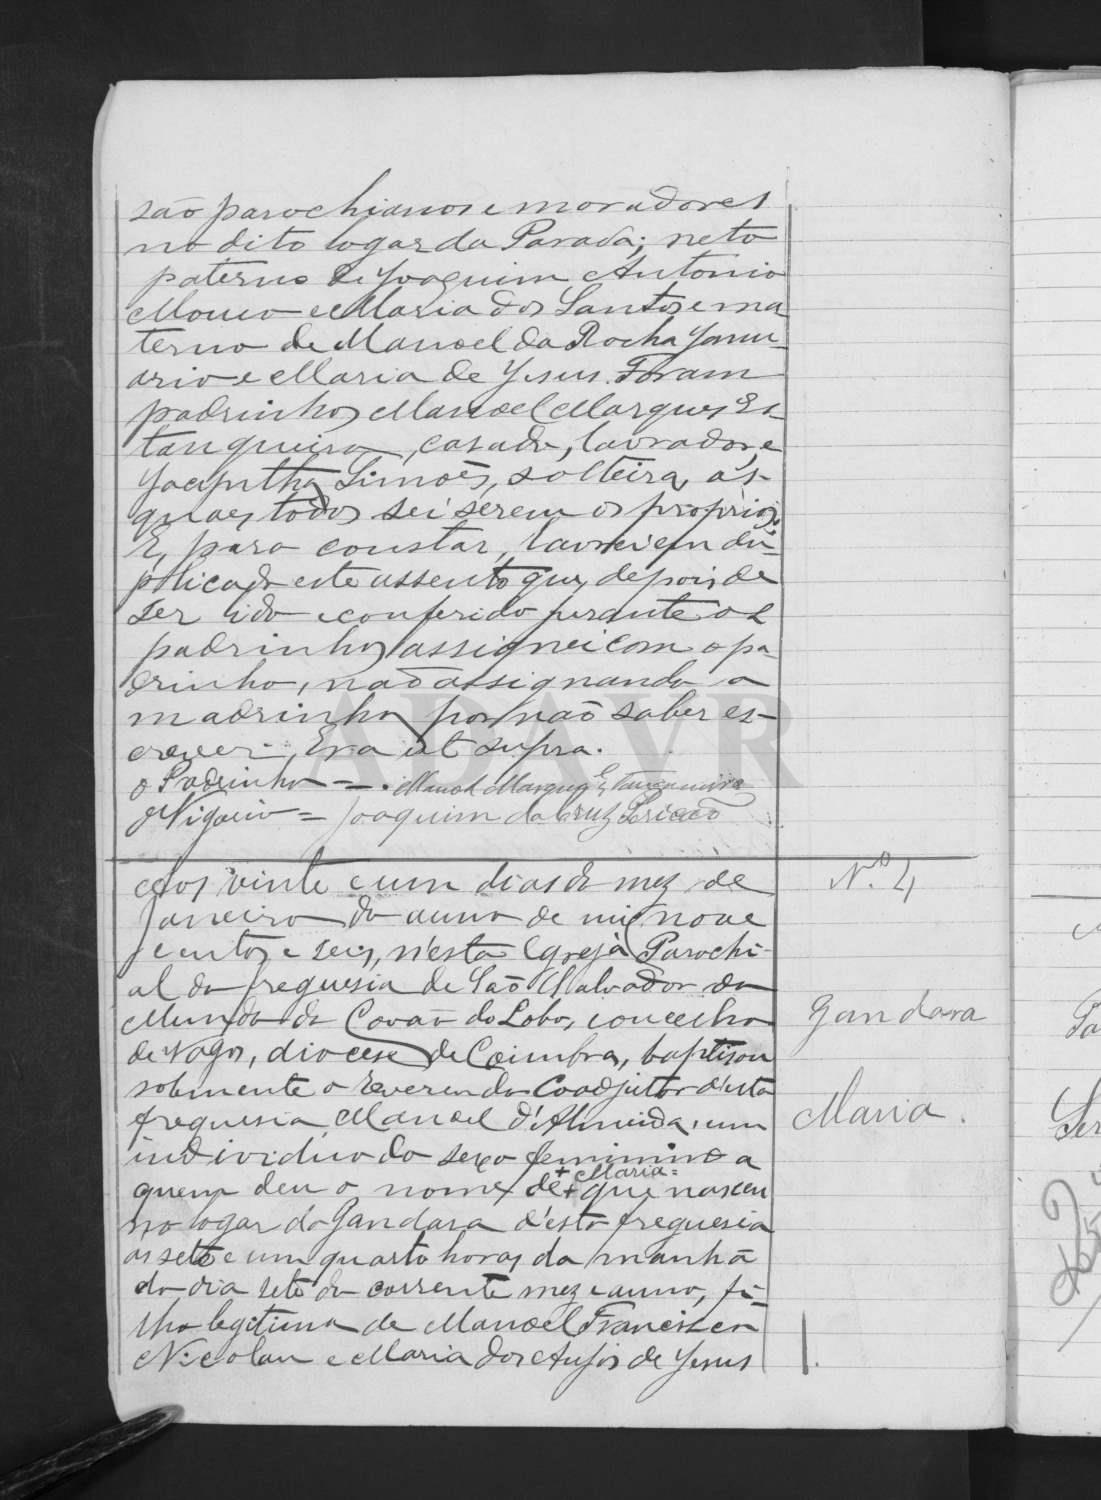 são parochianos e moradores
no dito logar da Parada; neto
paterno de Joaquim Antonio
Mouco e Maria dos Santos e ma
terno de Manoel da Rocha Janu-
ario e Maria de Jesus. Foram
padrinhos Manoel Marques Es-
tanqueiro, casado, lavrador, e
Jacintha Simões, solteira, os
quaes todos sei serem os proprios.
E, para constar, lavrei em du-
plicado este assento que, depois de
ser lido e conferido perante os
padrinhos, assignei com o pa-
drinho, não assignando a
madrinha por não saber es-
crever. Era ut supra.
O Padrinho = Manoel Marques Estanqueiro
O Vigario = Joaquim da Cruz
Nº 4
Gandara
Maria.
Aos vinte e um dias do mez de
Janeiro do anno de mil nove
centos e seis, n'esta Egreja Parochi-
al da freguesia de São Salvador do
Mundo de Covão do Lobo, concelho
de Vagos, diocese de Coimbra, baptisou
solemnemente o Reverendo Coadjutor d'esta
freguesia, Manoel d'Almeida, um
individuo do sexo feminino a
quem deu o nome de + + Maria = que nasceu
no logar da Gandara d'esta freguesia
ás sete e um quarto horas da manhã
do dia sete do corrente mez e anno, fi-
lha legitima de Manoel Francisco
Nicolau e Maria dos Anjos de Jesus
ADAVR